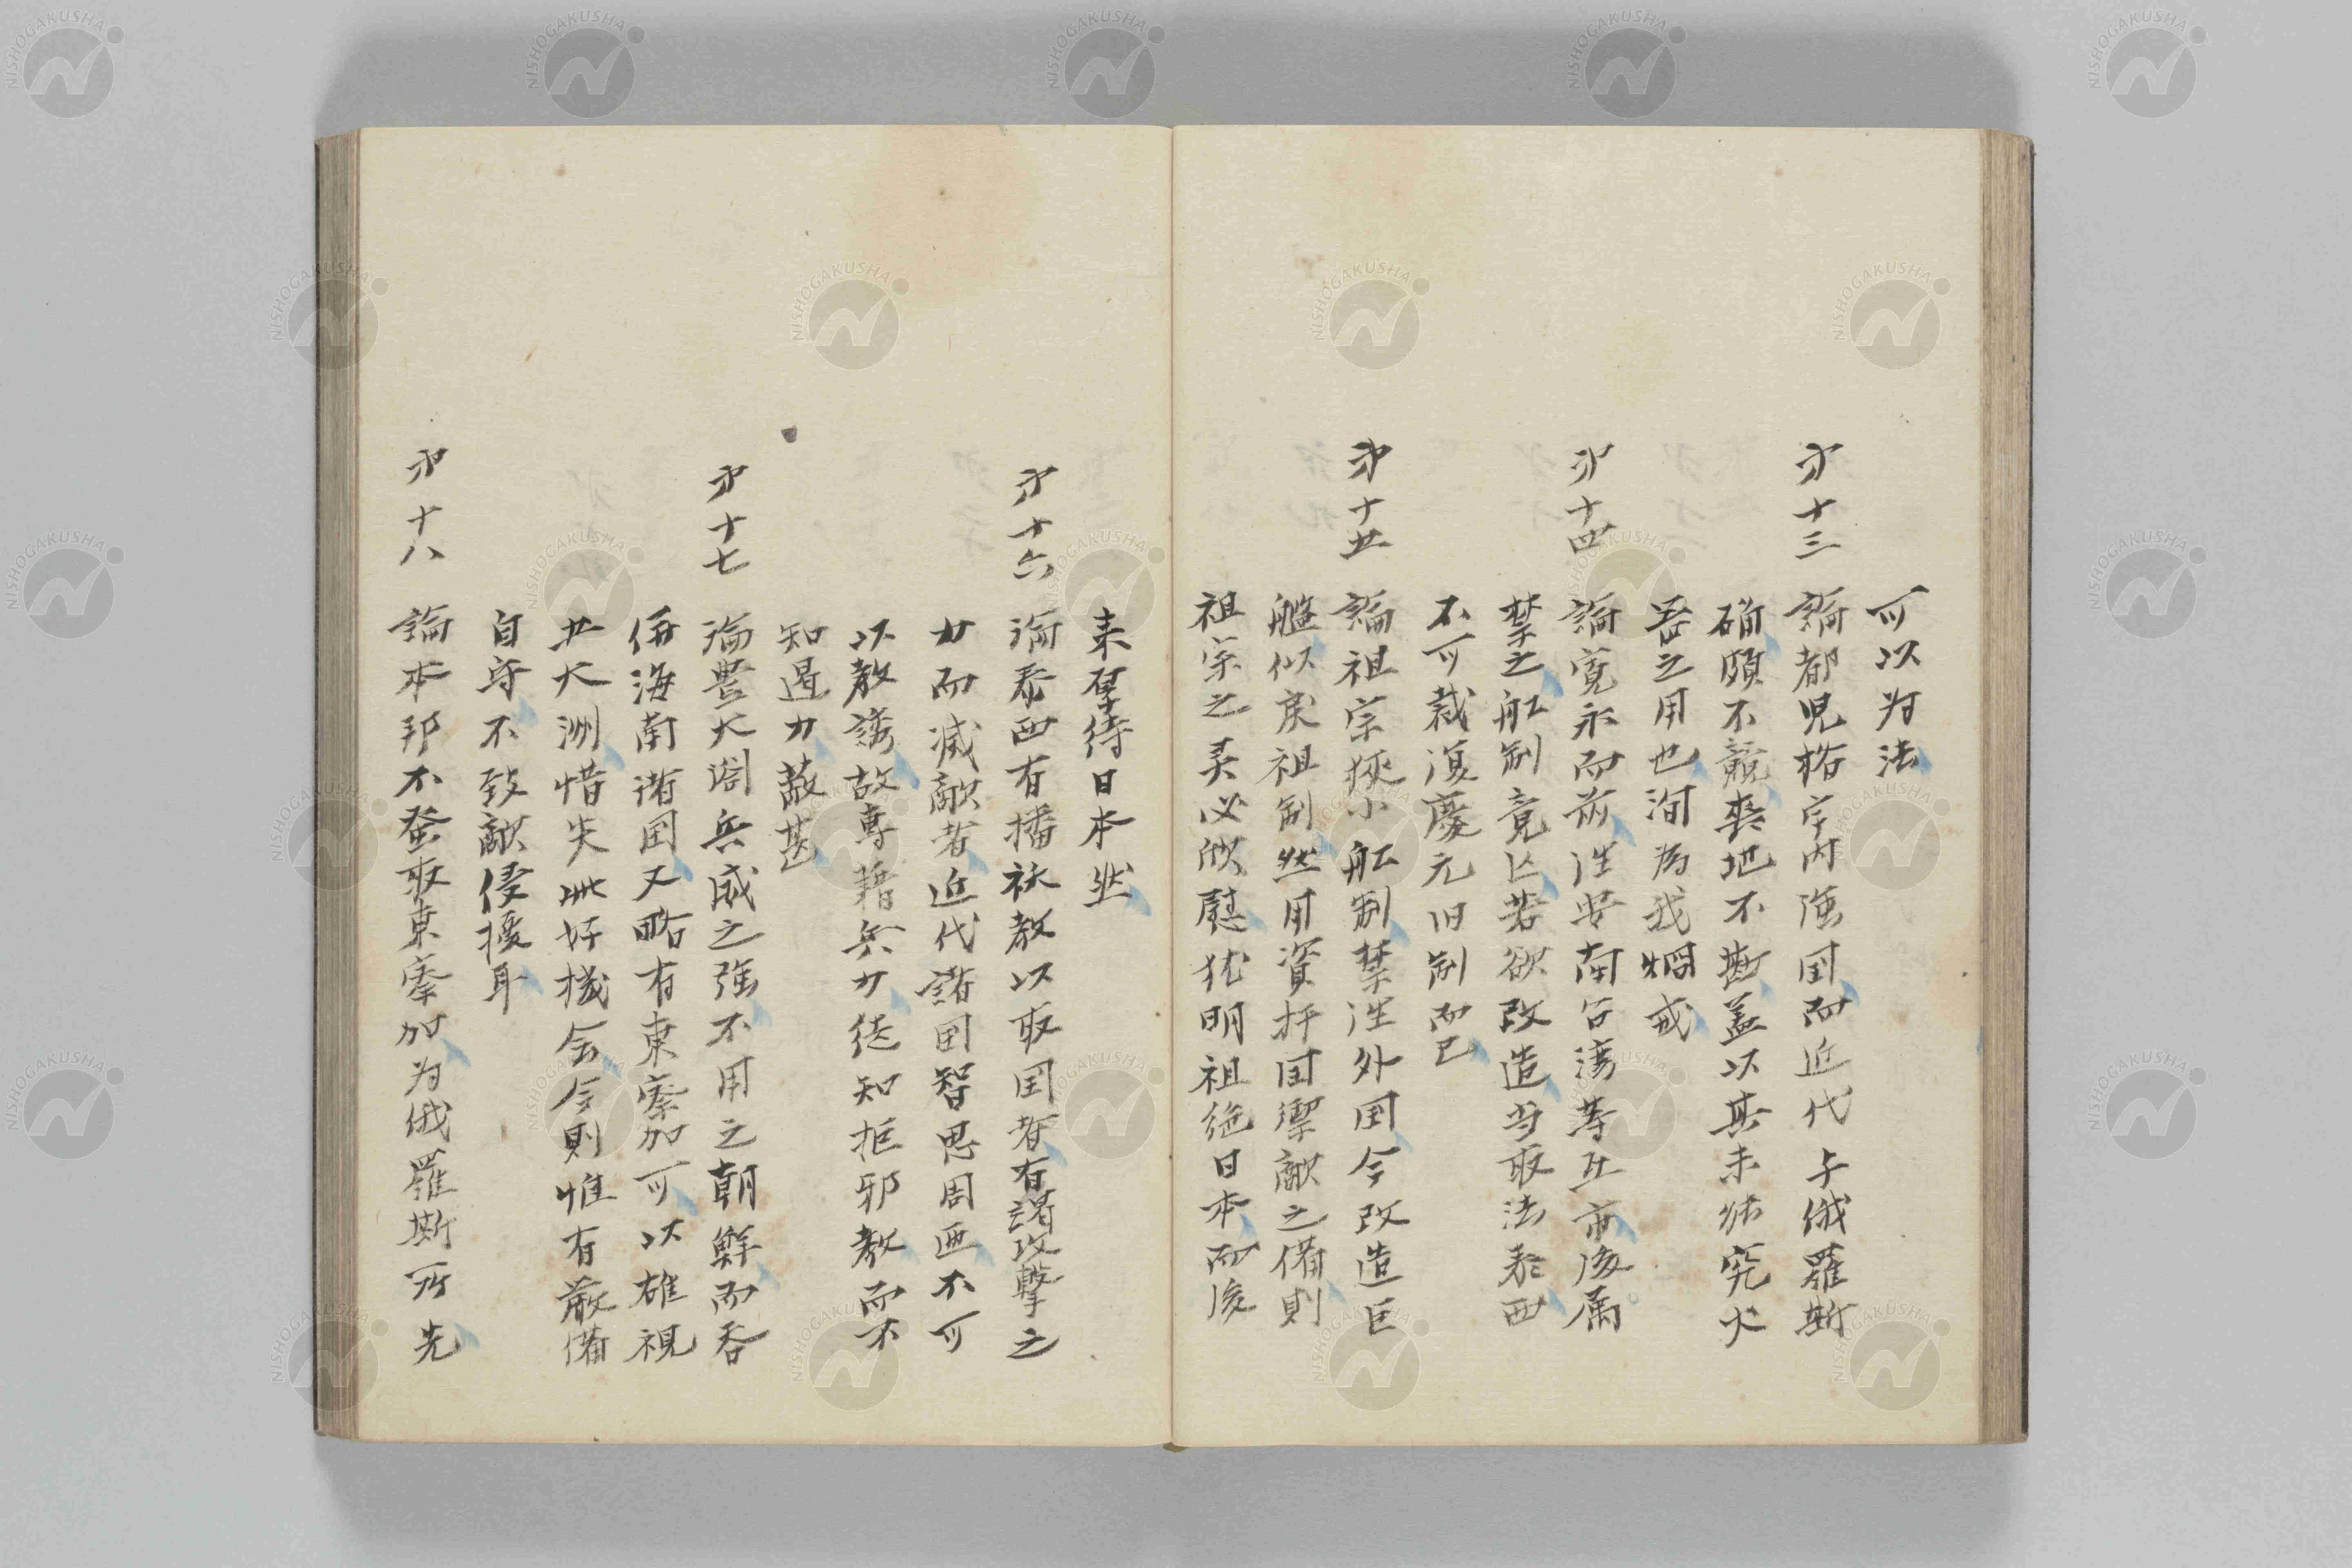 可以为法
㐧十三 論都児格宇内強国而近代与俄羅斯
碻頗不競喪地不尠蓋以其未炶究火
器之用也洵為我炯戒
㐧十四 論寛永而前往安南台湾等互市後属
禁之舩制竟亡若欲改造当取法泰西
不可裁復慶元旧制而已
㐧十五 論祖宗狹小舩制禁往外国今改造巨
艦似戻祖制然用資扞国禦敵之備則
祖宗之灵必欣慰犹明祖絶日本而後
来孽待日本然
㐧十六 論泰西有播祅教以取国者有謁攻撃之
力而滅敵者近代諸国智思周匝不可
以教誘故専藉兵力徒知拒邪教而不
知遏力蔽甚
㐧十七 論豊太閤兵威之強不用之朝鮮而呑
併海南諸国又略有東察加可以雄視
五大洲惜失此好機会今則惟有厳備
自守不致敵侵擾耳
㐧十八 論本邦不蚤取東察加为俄羅斯所先
NISHOGAKUSHA